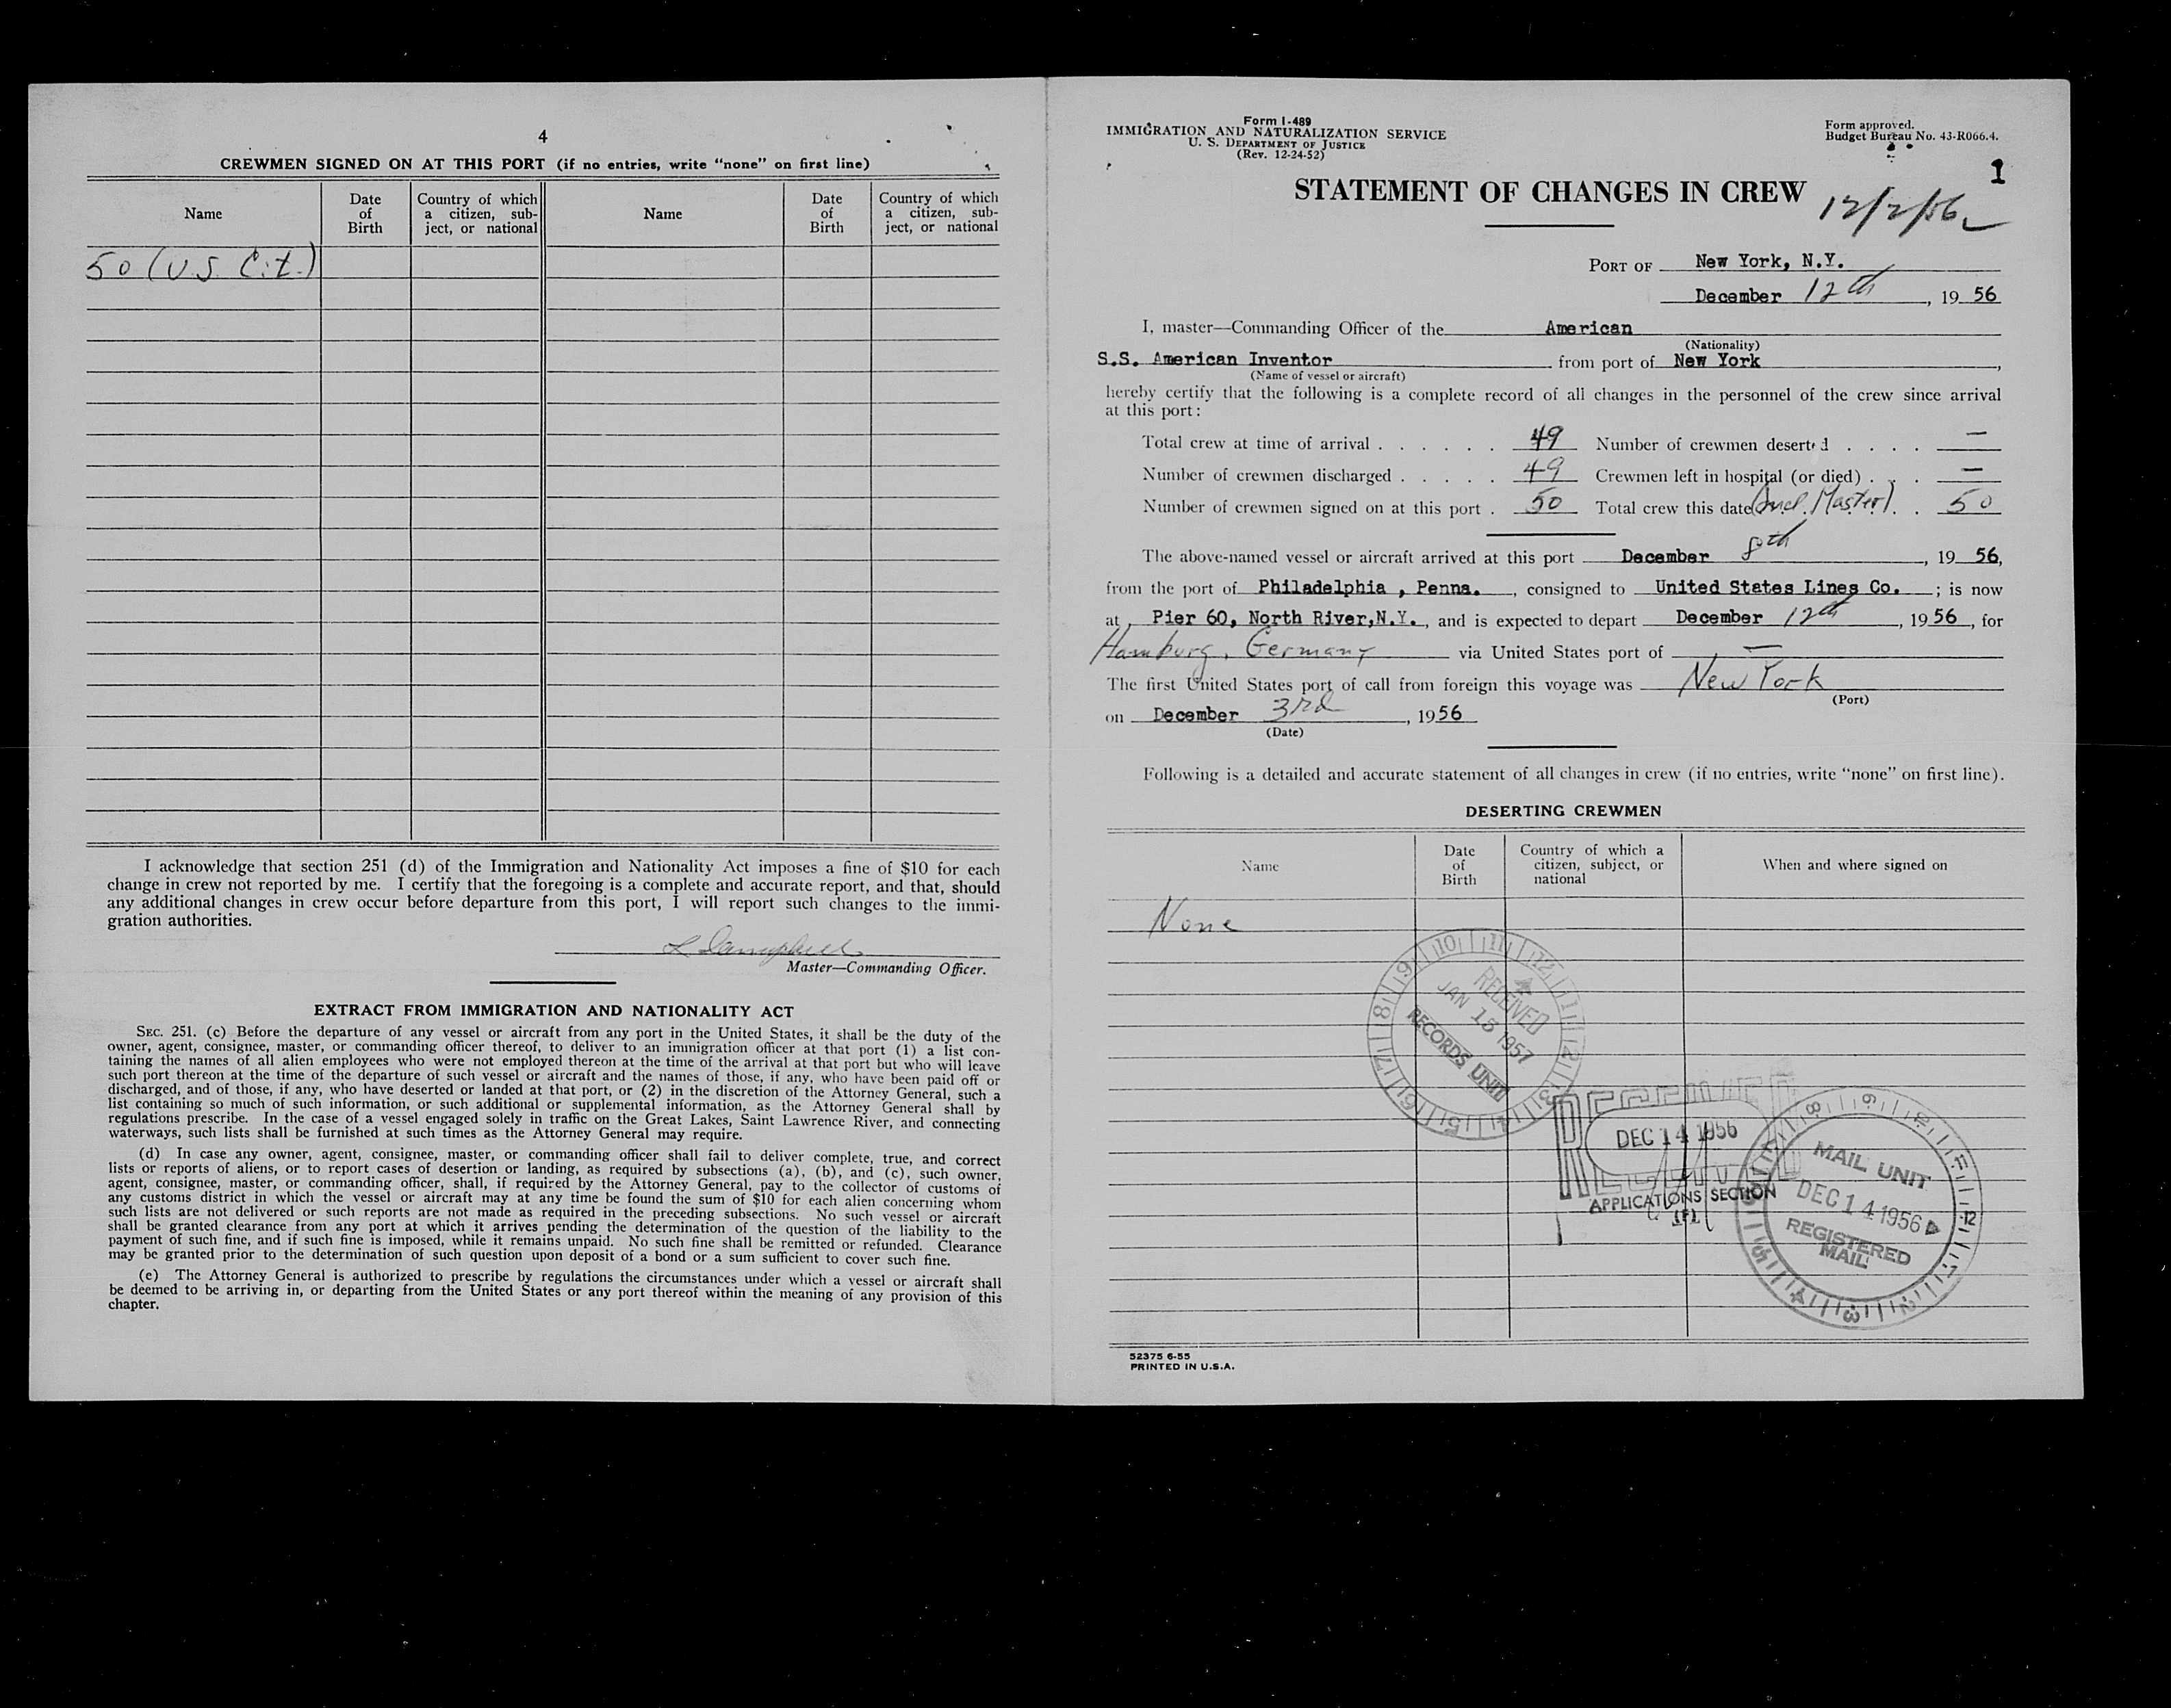 4
CREWMEN SIGNED ON AT THIS PORT (if no entries, write "none" on first line)
Name
Date of Birth
Country of which a citizen, sub-ject, or national
Name
Date of Birth
Country of which a citizen, sub-ject, or national
50 (U.S. Cit.)
I acknowledge that section 251 (d) of the Immigration and Nationality Act imposes a fine of $10 for each
change in crew not reported by me. I certify that the foregoing is a complete and accurate report, and that, should
any additional changes in crew occur before departure from this port, I will report such changes to the immi-
gration authorities.
Master—Commanding Officer.
EXTRACT FROM IMMIGRATION AND NATIONALITY ACT
SEC. 251. (c) Before the departure of any vessel or aircraft from any port in the United States, it shall be the duty of the
owner, agent, consignee, master, or commanding officer thereof, to deliver to an immigration officer at that port (1) a list con-
taining the names of all alien employees who were not employed thereon at the time of the arrival at that port but who will leave
such port thereon at the time of the departure of such vessel or aircraft and the names of those, if any, who have been paid off or
discharged, and of those, if any, who have deserted or landed at that port, or (2) in the discretion of the Attorney General, such a
list containing so much of such information, or such additional or supplemental information, as the Attorney General shall by
regulations prescribe. In the case of a vessel engaged solely in traffic on the Great Lakes, Saint Lawrence River, and connecting
waterways, such lists shall be furnished at such times as the Attorney General may require.
(d) In case any owner, agent, consignee, master, or commanding officer shall fail to deliver complete, true, and correct
lists or reports of aliens, or to report cases of desertion or landing, as required by subsections (a), (b), and (c), such owner,
agent, consignee, master, or commanding officer, shall, if required by the Attorney General, pay to the collector of customs of
any customs district in which the vessel or aircraft may at any time be found the sum of $10 for each alien concerning whom
such lists are not delivered or such reports are not made as required in the preceding subsections. No such vessel or aircraft
shall be granted clearance from any port at which it arrives pending the determination of the question of the liability to the
payment of such fine, and if such fine is imposed, while it remains unpaid. No such fine shall be remitted or refunded. Clearance
may be granted prior to the determination of such question upon deposit of a bond or a sum sufficient to cover such fine.
(e) The Attorney General is authorized to prescribe by regulations the circumstances under which a vessel or aircraft shall
be deemed to be arriving in, or departing from the United States or any port thereof within the meaning of any provision of this
chapter.
Form I-489
IMMIGRATION AND NATURALIZATION SERVICE
U. S. DEPARTMENT OF JUSTICE
(Rev. 12-24-52)
Form approved.
Budget Bureau No. 43-R066.4.
1
STATEMENT OF CHANGES IN CREW
12/2/56
PORT OF New York, N.Y.
December 12th, 19 56
I, master—Commanding Officer of the American
(Nationality)
S.S. American Inventor from port of New York,
(Name of vessel or aircraft)
hereby certify that the following is a complete record of all changes in the personnel of the crew since arrival
at this port:
Total crew at time of arrival . . . . . . 49 Number of crewmen deserted . . . . —
Number of crewmen discharged . . . . . 49 Crewmen left in hospital (or died) . . . —
Number of crewmen signed on at this port . 50 Total crew this date (Incl. Master) . . 50
The above-named vessel or aircraft arrived at this port December 8th, 19 56,
from the port of Philadelphia , Penna., consigned to United States Lines Co. ; is now
at Pier 60, North River,N.Y., and is expected to depart December 12th, 19 56, for
Hamburg, Germany via United States port of —
The first United States port of call from foreign this voyage was New York
(Port)
on December 3rd, 19 56
(Date)
Following is a detailed and accurate statement of all changes in crew (if no entries, write "none" on first line).
DESERTING CREWMEN
Name
Date of Birth
Country of which a citizen, subject, or national
When and where signed on
None
RECEIVED
JAN 15 1957
RECORDS UNIT
RECEIVED
DEC 14 1956
APPLICATIONS SECTION
(F)
MAIL UNIT
DEC 14 1956
REGISTERED
MAIL
52375 6-55
PRINTED IN U.S.A.